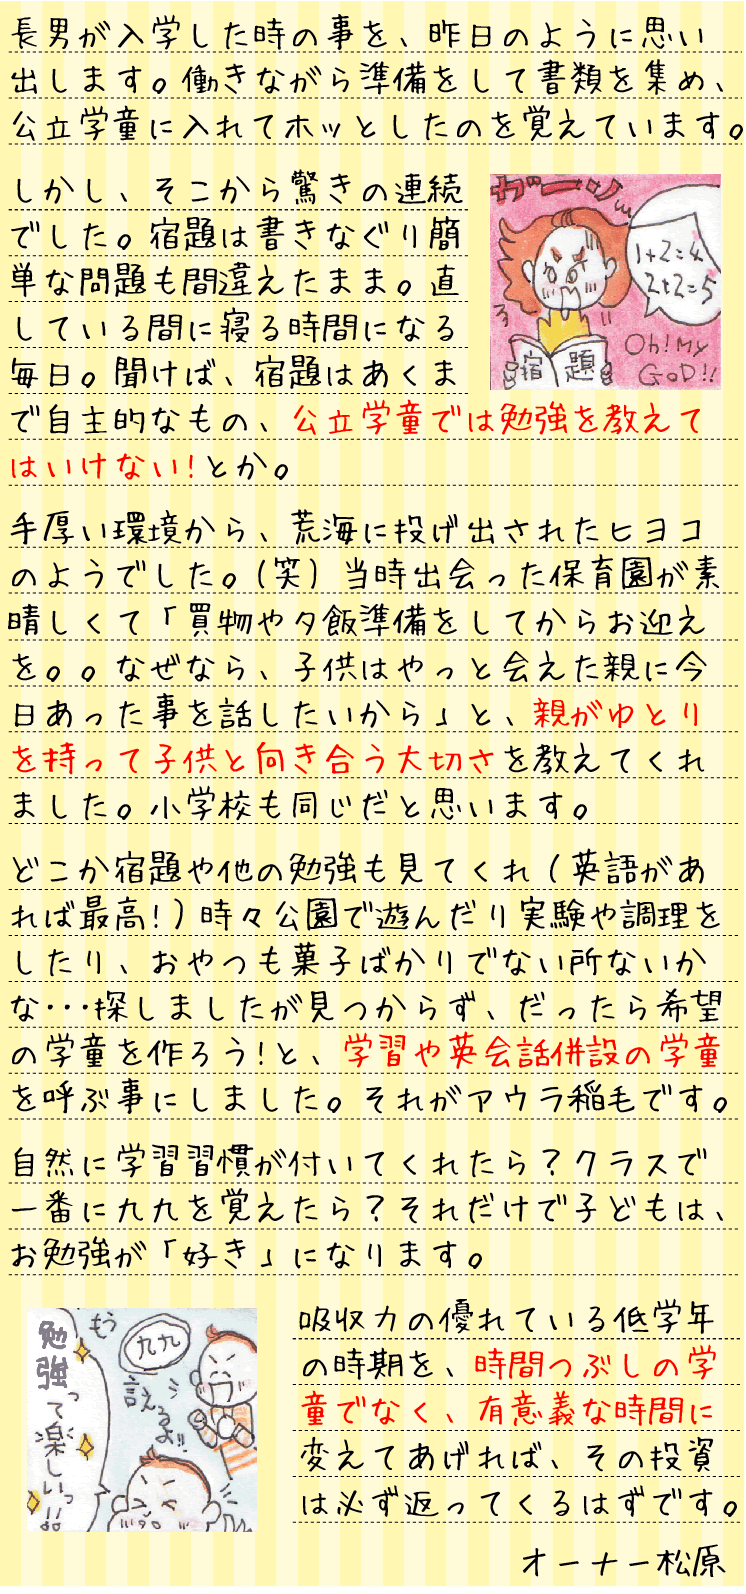 長男が入学した時の事を、昨日のように思い
出します。働きながら準備をして書類を集め、
公立学童に入れてホッとしたのを覚えています。
しかし、そこから驚きの連続
でした。宿題は書きなぐり簡
単な問題も間違えたまま。直
している間に寝る時間になる
毎日。聞けば、宿題はあくま
で自主的なもの、公立学童では勉強を教えて
はいけない!とか。
ガーン
1+2=4
2+2=5
Oh! My
GoD!!
宿題
手厚い環境から、荒海に投げ出されたヒヨコ
のようでした。(笑)当時出会った保育園が素
晴しくて「買物や夕飯準備をしてからお迎え
を。。なぜなら、子供はやっと会えた親に今
日あった事を話したいから」と、親がゆとり
を持って子供と向き合う大切さを教えてくれ
ました。小学校も同じだと思います。
どこか宿題や他の勉強も見てくれ(英語があ
れば最高!)時々公園で遊んだり実験や調理を
したり、おやつも菓子ばかりでない所ないか
な・・・探しましたが見つからず、だったら希望
の学童を作ろう!と、学習や英会話併設の学童
を呼ぶ事にしました。それがアウラ稲毛です。
自然に学習習慣が付いてくれたら?クラスで
一番に九九を覚えたら?それだけで子どもは、
お勉強が「好き」になります。
もう
九九
言えるよ!!
勉強
って楽しいっ!!
吸収力の優れている低学年
の時期を、時間つぶしの学
童でなく、有意義な時間に
変えてあげれば、その投資
は必ず返ってくるはずです。
オーナー松原